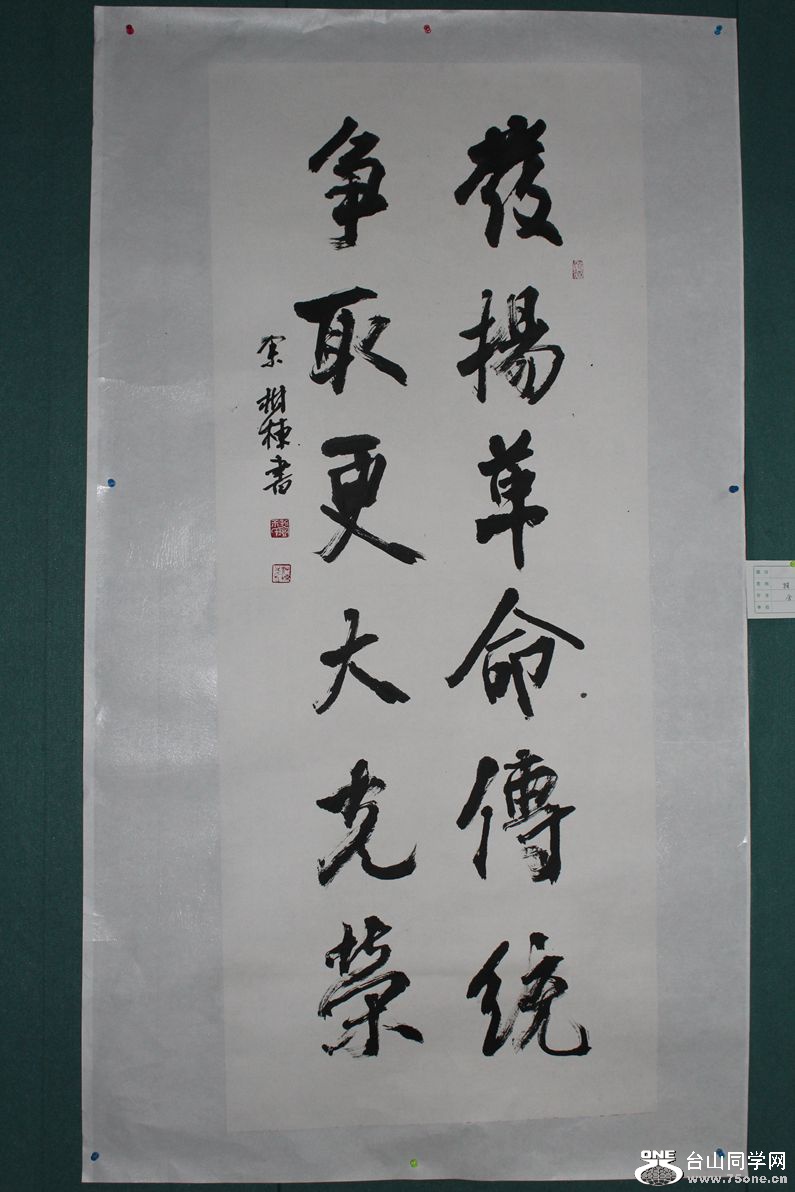 發揚革命傳統
争取更大光榮
樹棟書
ONE
台山同学网
www.75one.cn